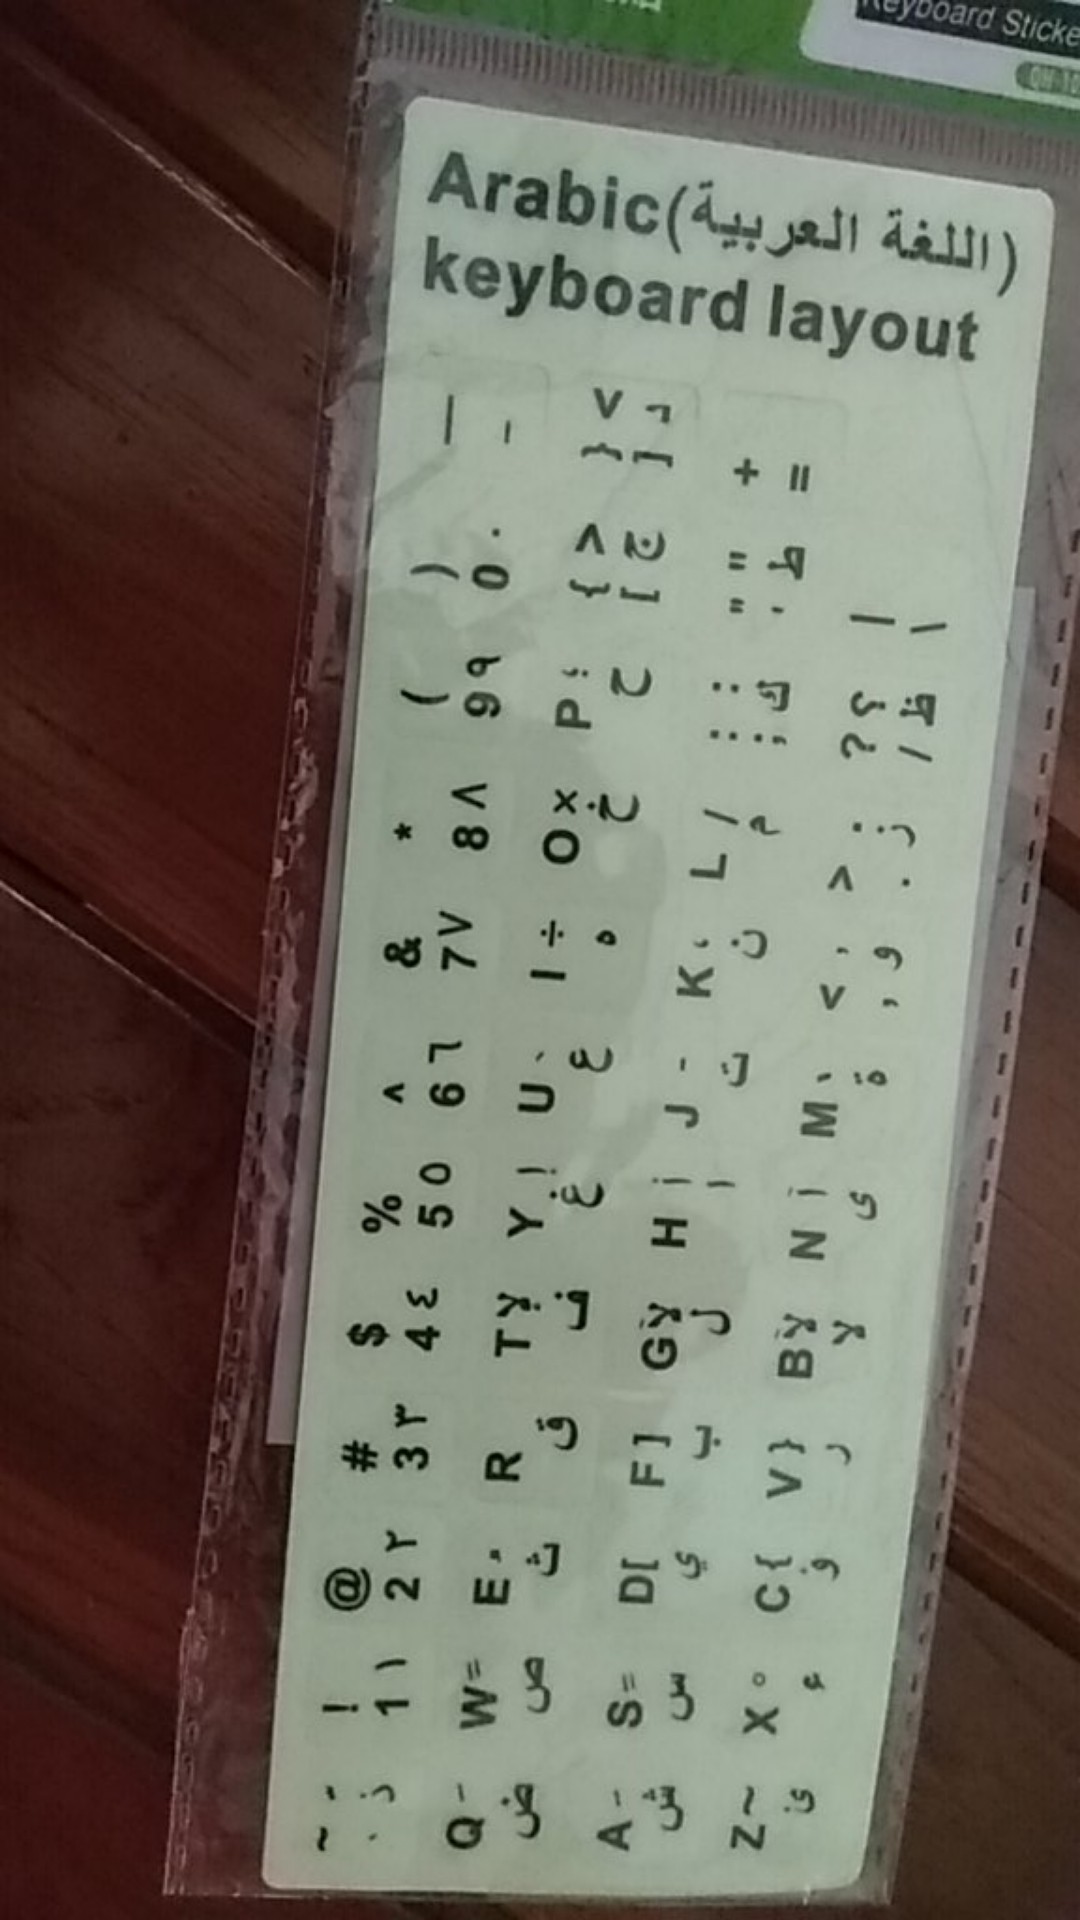 Keyboard Sticke
Arabic(اللغة العربية)
keyboard layout
~ ّ ! @ # $ % ^ & * ( ) _
` ذ 1 ١ 2 ٢ 3 ٣ 4 ٤ 5 ٥ 6 ٦ 7 ٧ 8 ٨ 9 ٩ 0 ٠ -
Q َ W ً E ُ R T لإ Y إ U ` I ÷ O × P ؛ { < } >
ض ص ث ق ف غ ع ه خ ح [ ج ] د
A ِ S ٍ D [ F ] G لأ H أ J ـ K ، L / : : " " +
ش س ي ب ل ا ت ن م ; ك ' ط =
Z ~ X ْ C { V } B لآ N آ M ' < , > . ? ؟ |
ئ ء ؤ ر لا ى ة , و . ز / ظ \